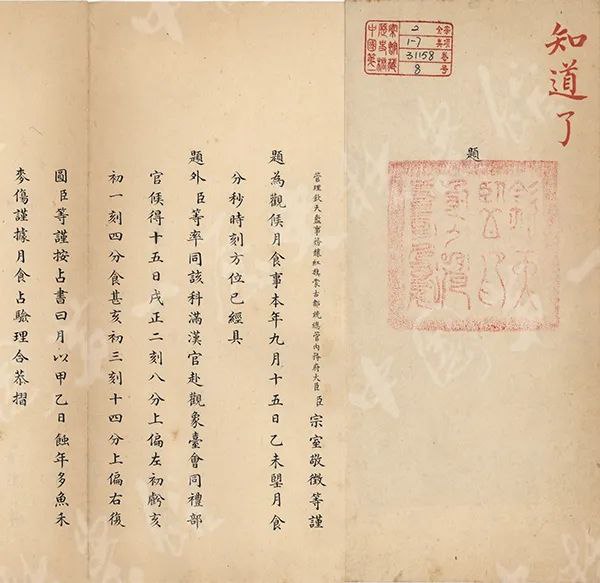 知道了
2
1-7
31158
8
題
管理欽天監事務鑲紅旗蒙古都統總管內務府大臣臣宗室敬徵等謹
題為觀候月食事本年九月十五日乙未朢月食
分秒時刻方位已經具
題外臣等率同該科滿漢官赴觀象臺會同禮部
官候得十五日戌正二刻八分上偏左初虧亥
初一刻四分食甚亥初三刻十四分上偏右復
圓臣等謹按占書曰月以甲乙日蝕年多魚禾
麥傷謹據月食占驗理合恭摺